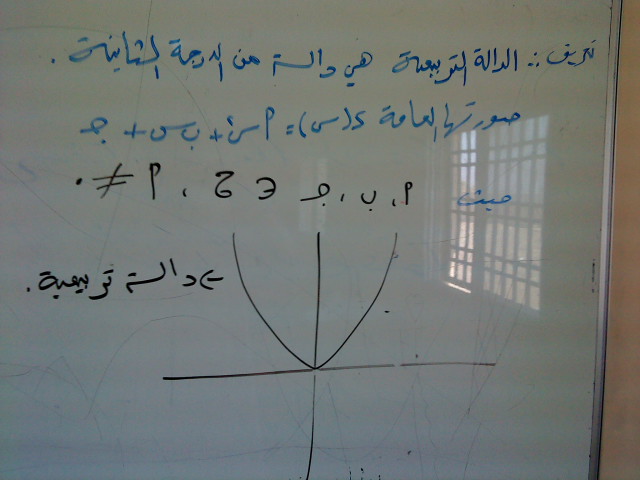 تعريف :: الدالة التربيعية هي دالة من الدرجة الثانية .
صورتها العامة د(س) = م س² + ب س + جـ
حيث م ، ب ، جـ ∈ ح ، م ≠ ٠
د دالة تربيعية .